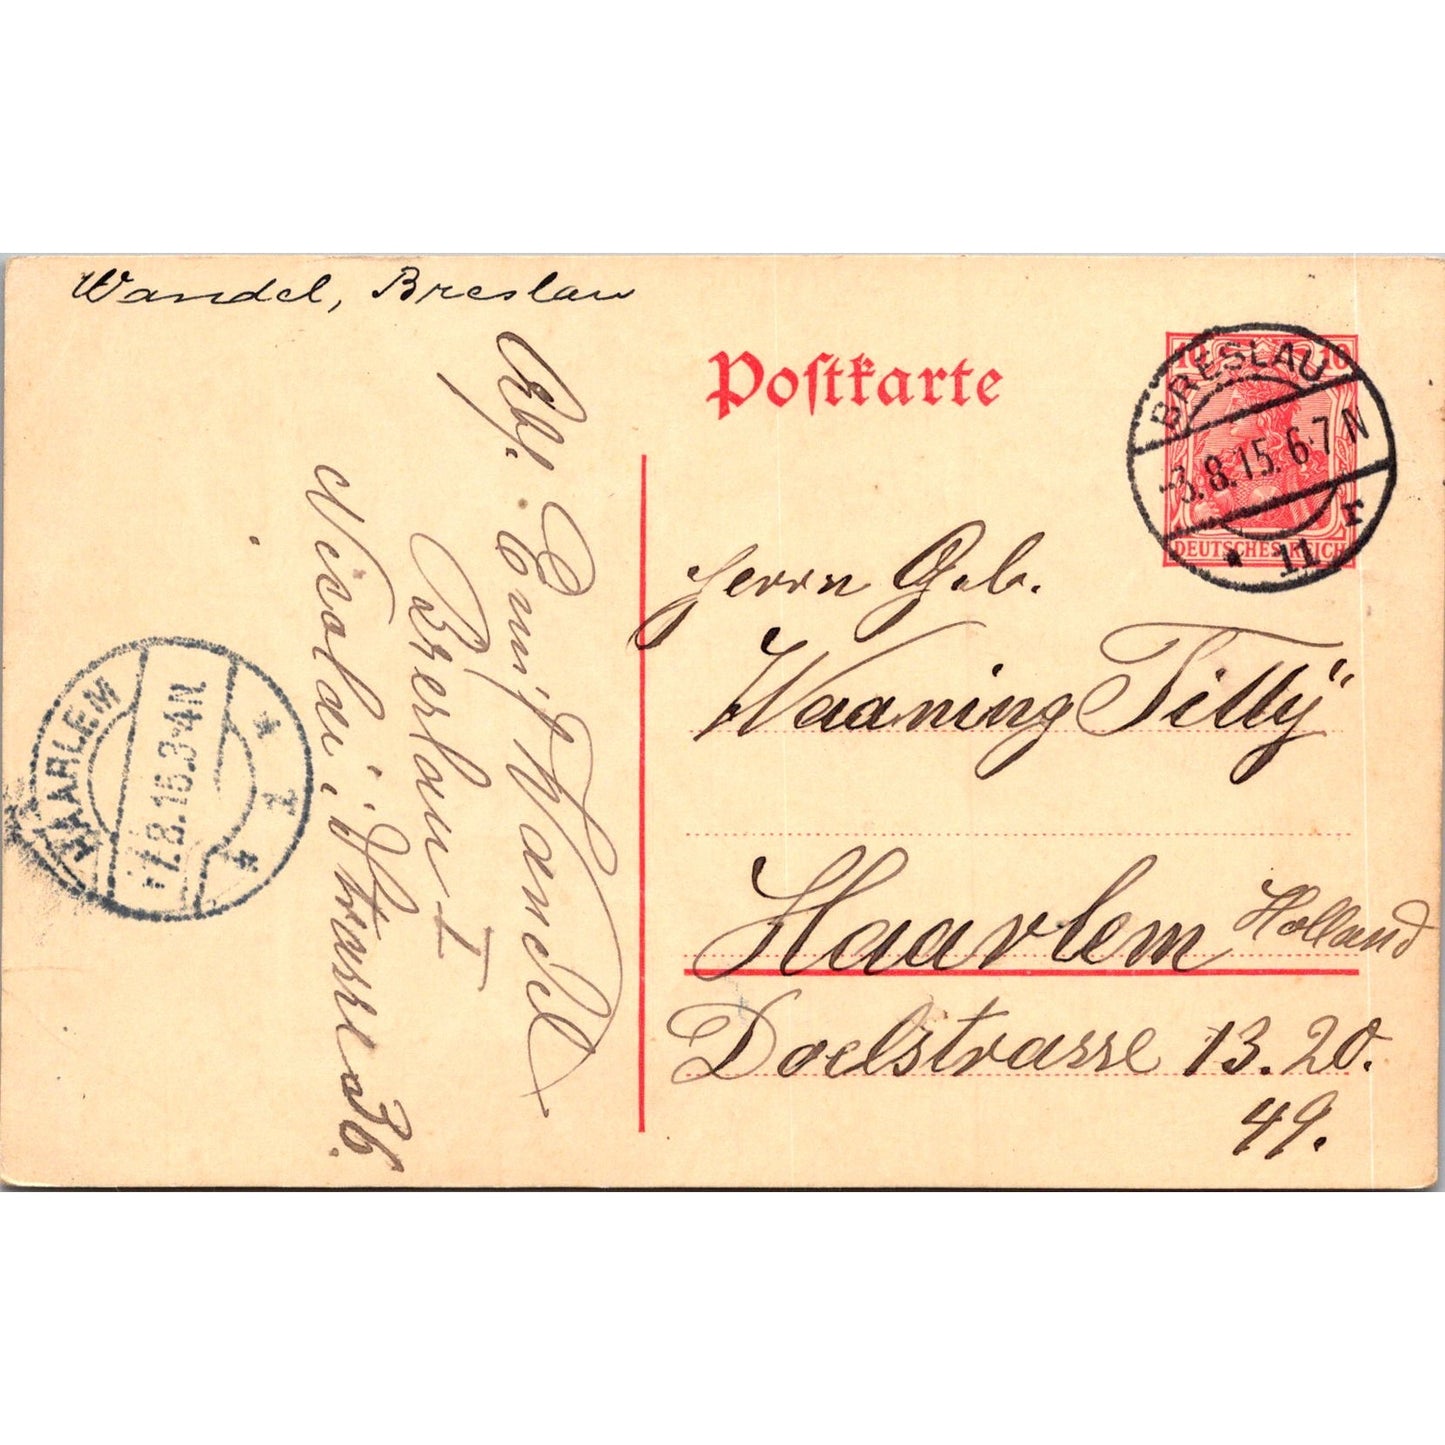 Wandel, Breslau
Postkarte
10 10
DEUTSCHES REICH
BRESLAU
-3.8.15. 6-7 N
* 11 r
Herrn Geb.
Waaning Tilly
Haarlem Holland
Doelstrasse 13.20.
49.
Abs. Emil Wandel
Breslau I
Nicolai-Strasse 36.
HAARLEM
-7.8.15.3-4N.
* 1 *